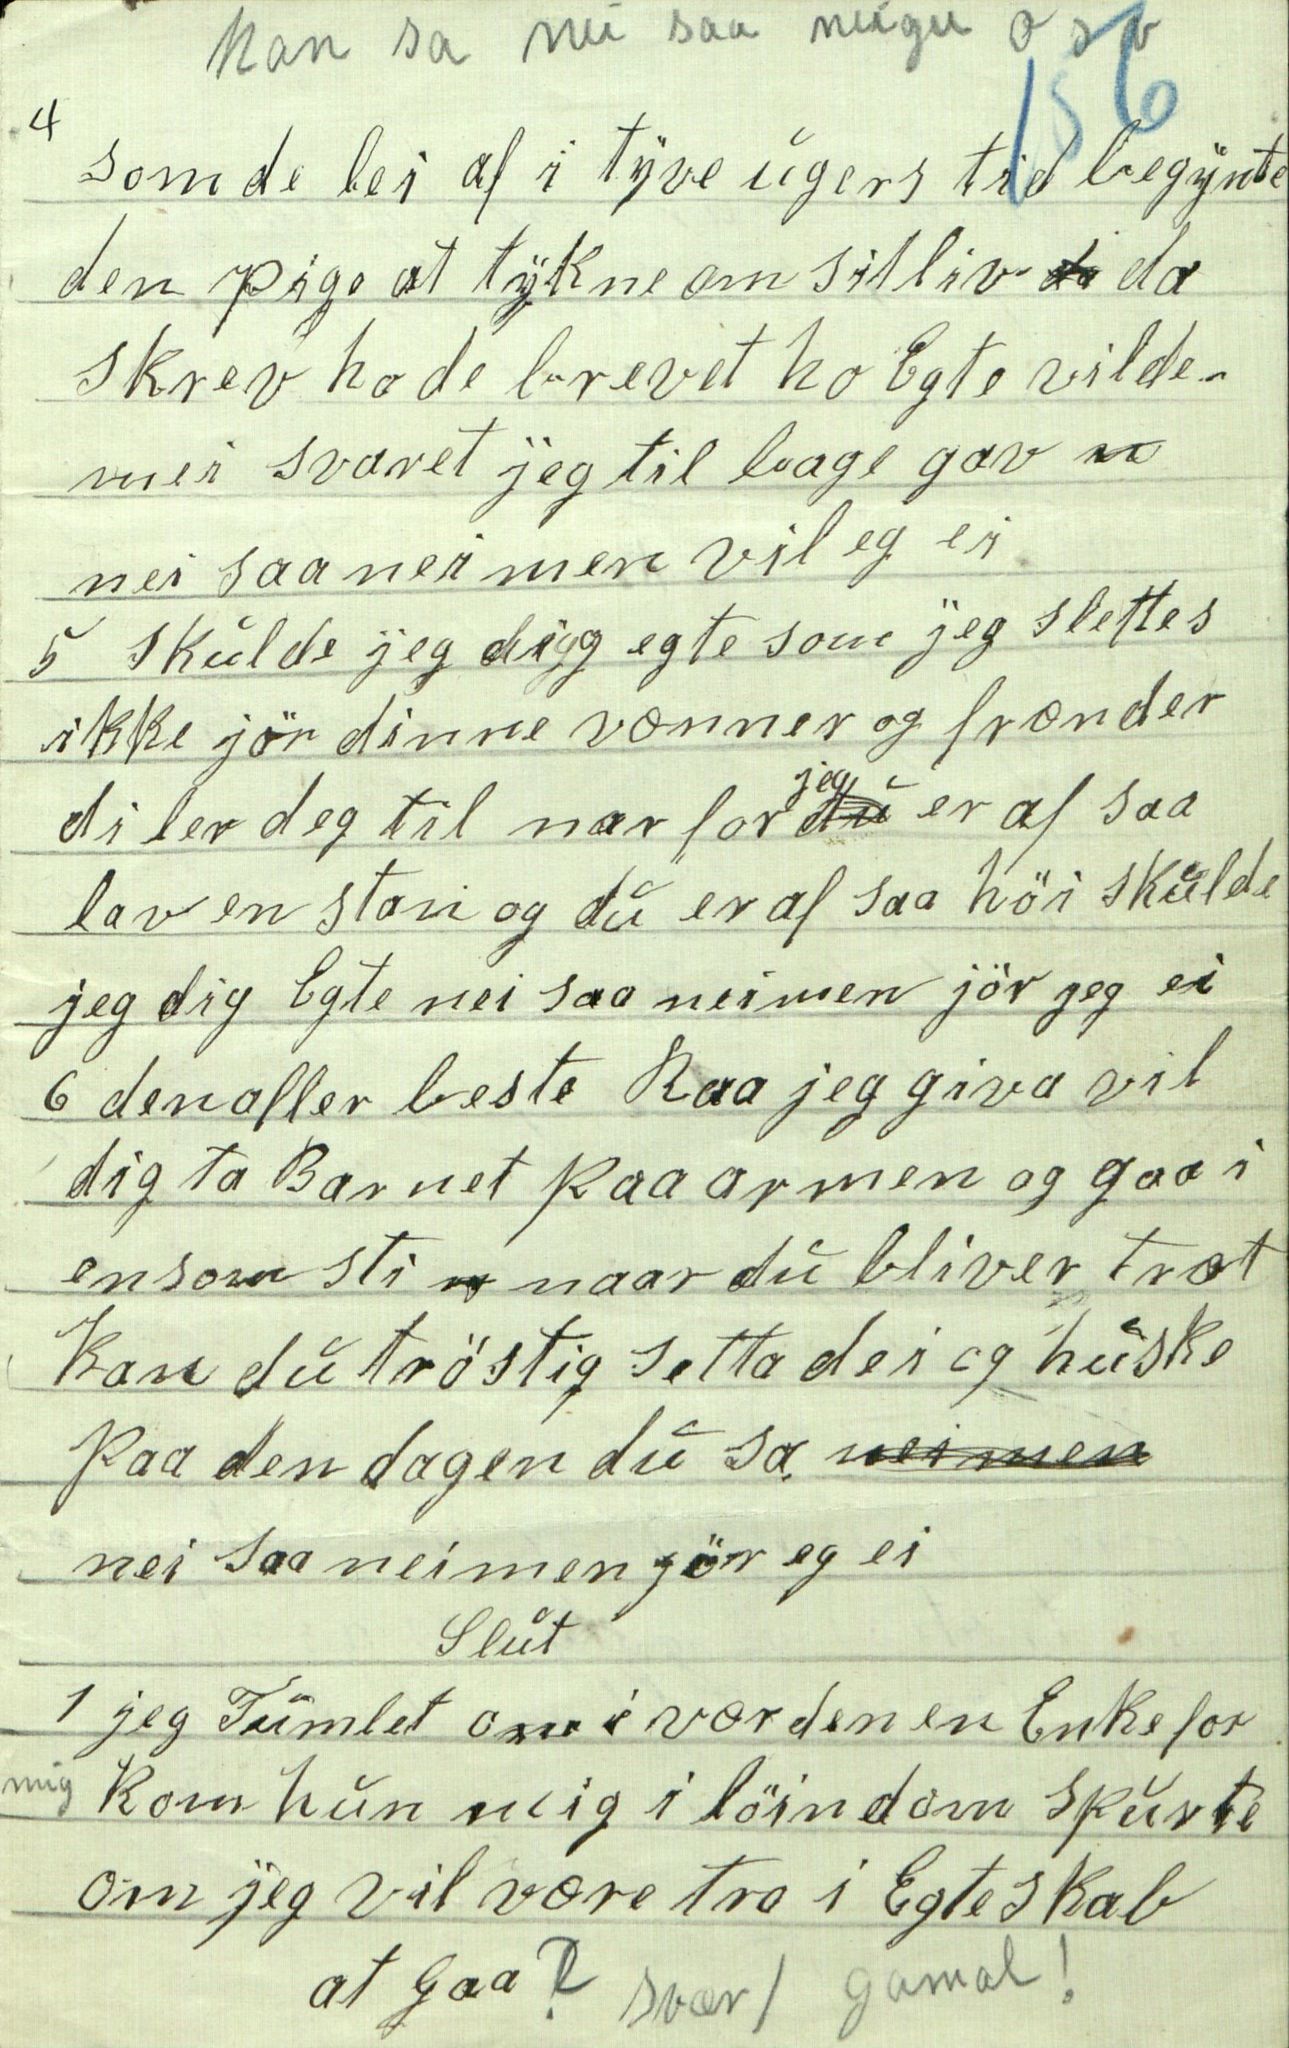 Han sa nei saa neigu o s v
156
4
som de lei af i tyve ugers tid begynte
den pige at tykne om sit liv da
skrev ho de brevet ho Egte vilde
mei svaret jeg til bage gav
nei saa nei men vil eg ei
5 skulde jeg digg egte som jeg slettes
ikke jör dinne vænner og frænder
di ler deg til nar for jeg er af saa
lav en stan og du er af saa höi skulde
jeg dig Egte nei saa neimen jör jeg ei
6 den aller beste Raa jeg giva vil
dig ta Barnet paa armen og gaa i
ensom sti naar du bliver træt
kan du tröstig setta dei og huske
paa den dagen du sa neimen
nei saa neimen jör eg ei
Slut
1 jeg Tumlet om i værden en Enke for
mig kom hun mig i löindom spurte
om jeg vil være tro i Egteskab
at gaa? svær / gamal!